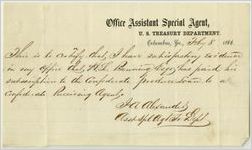 Office Assistant Special Agent,
U. S. TREASURY DEPARTMENT.
Columbus, Ga., Feby 8 186
This is to certify that, I have satisfactory evidence
in my office that, Benning Esqr, has paid his
subscription to the Confederate loan to a
Confederate Receiving Agent.
J. A. Alexander